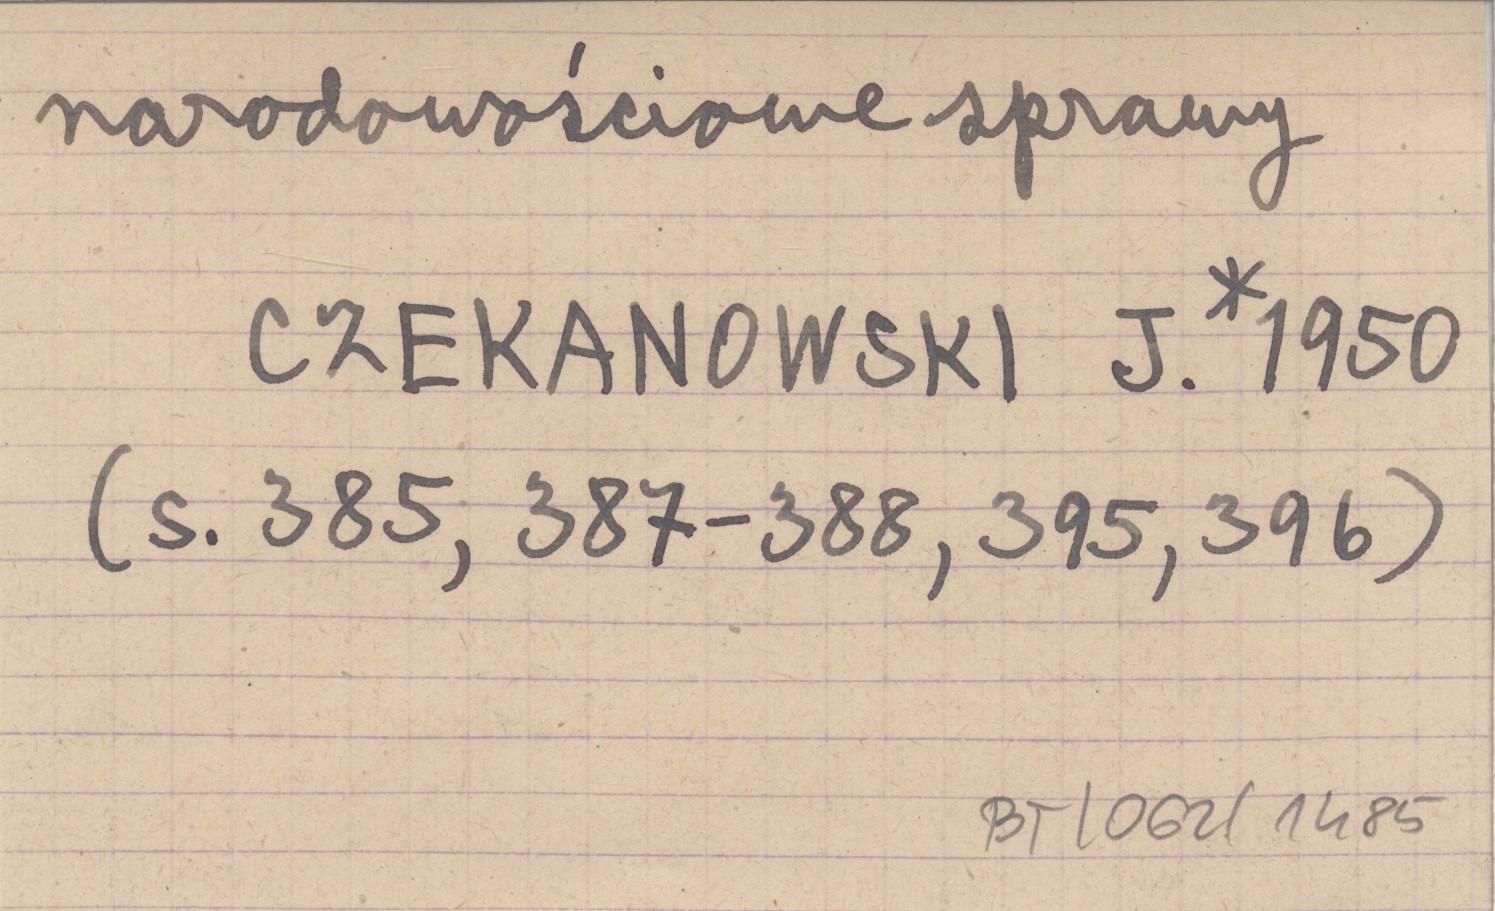 narodowościowe sprawy
CZEKANOWSKI J.*1950
(s. 385, 387-388, 395, 396)
BT/062/1485